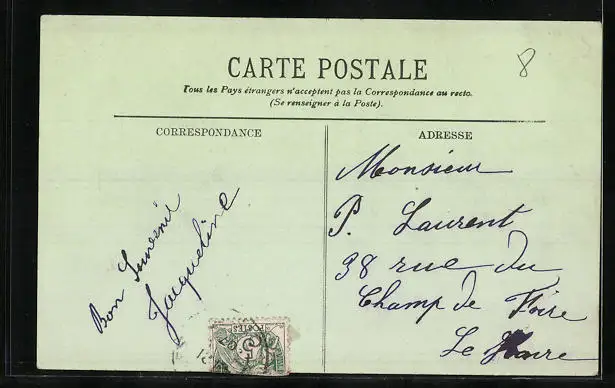 8
CARTE POSTALE
Tous les Pays étrangers n'acceptent pas la Correspondance au recto.
(Se renseigner à la Poste).
CORRESPONDANCE
Bon Souvenir
Jacqueline
POSTES
ADRESSE
Monsieur
P. Laurent
38 rue du
Champ de Foire
Le Havre